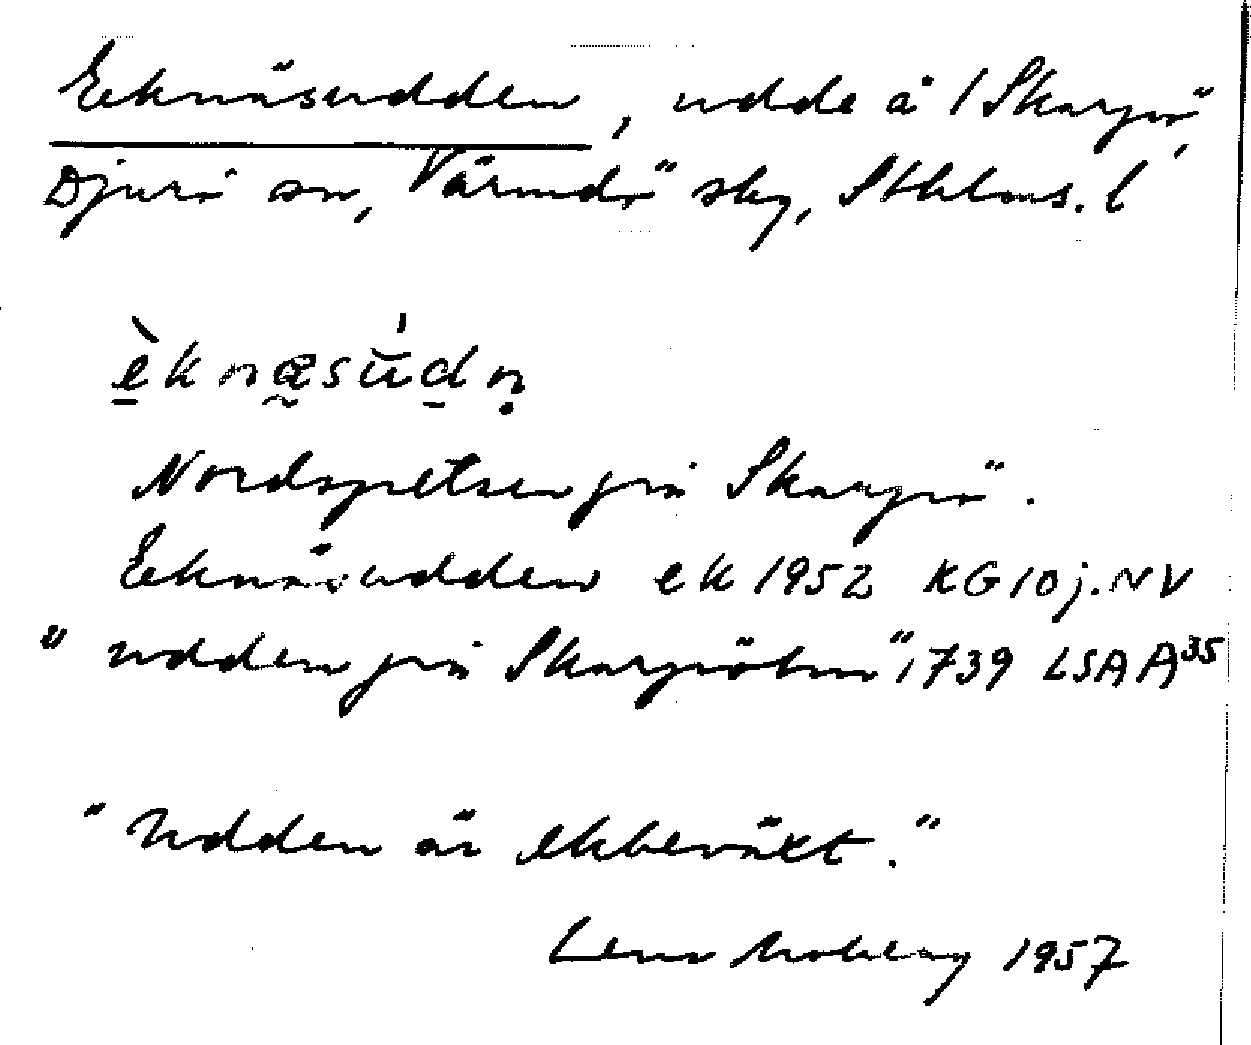 Eknäsudden, udde å 1 Skarpö,
Djurö sn, Värmdö skg, Sthlms. l
èknæsúdn̥
Nordspetsen på Skarpö.
Eknäsudden ek 1952 KG 10 j. NV
" udden på Skarpöön" 1739 LSA A35
"Udden är ekbeväxt."
Lena Moberg 1957